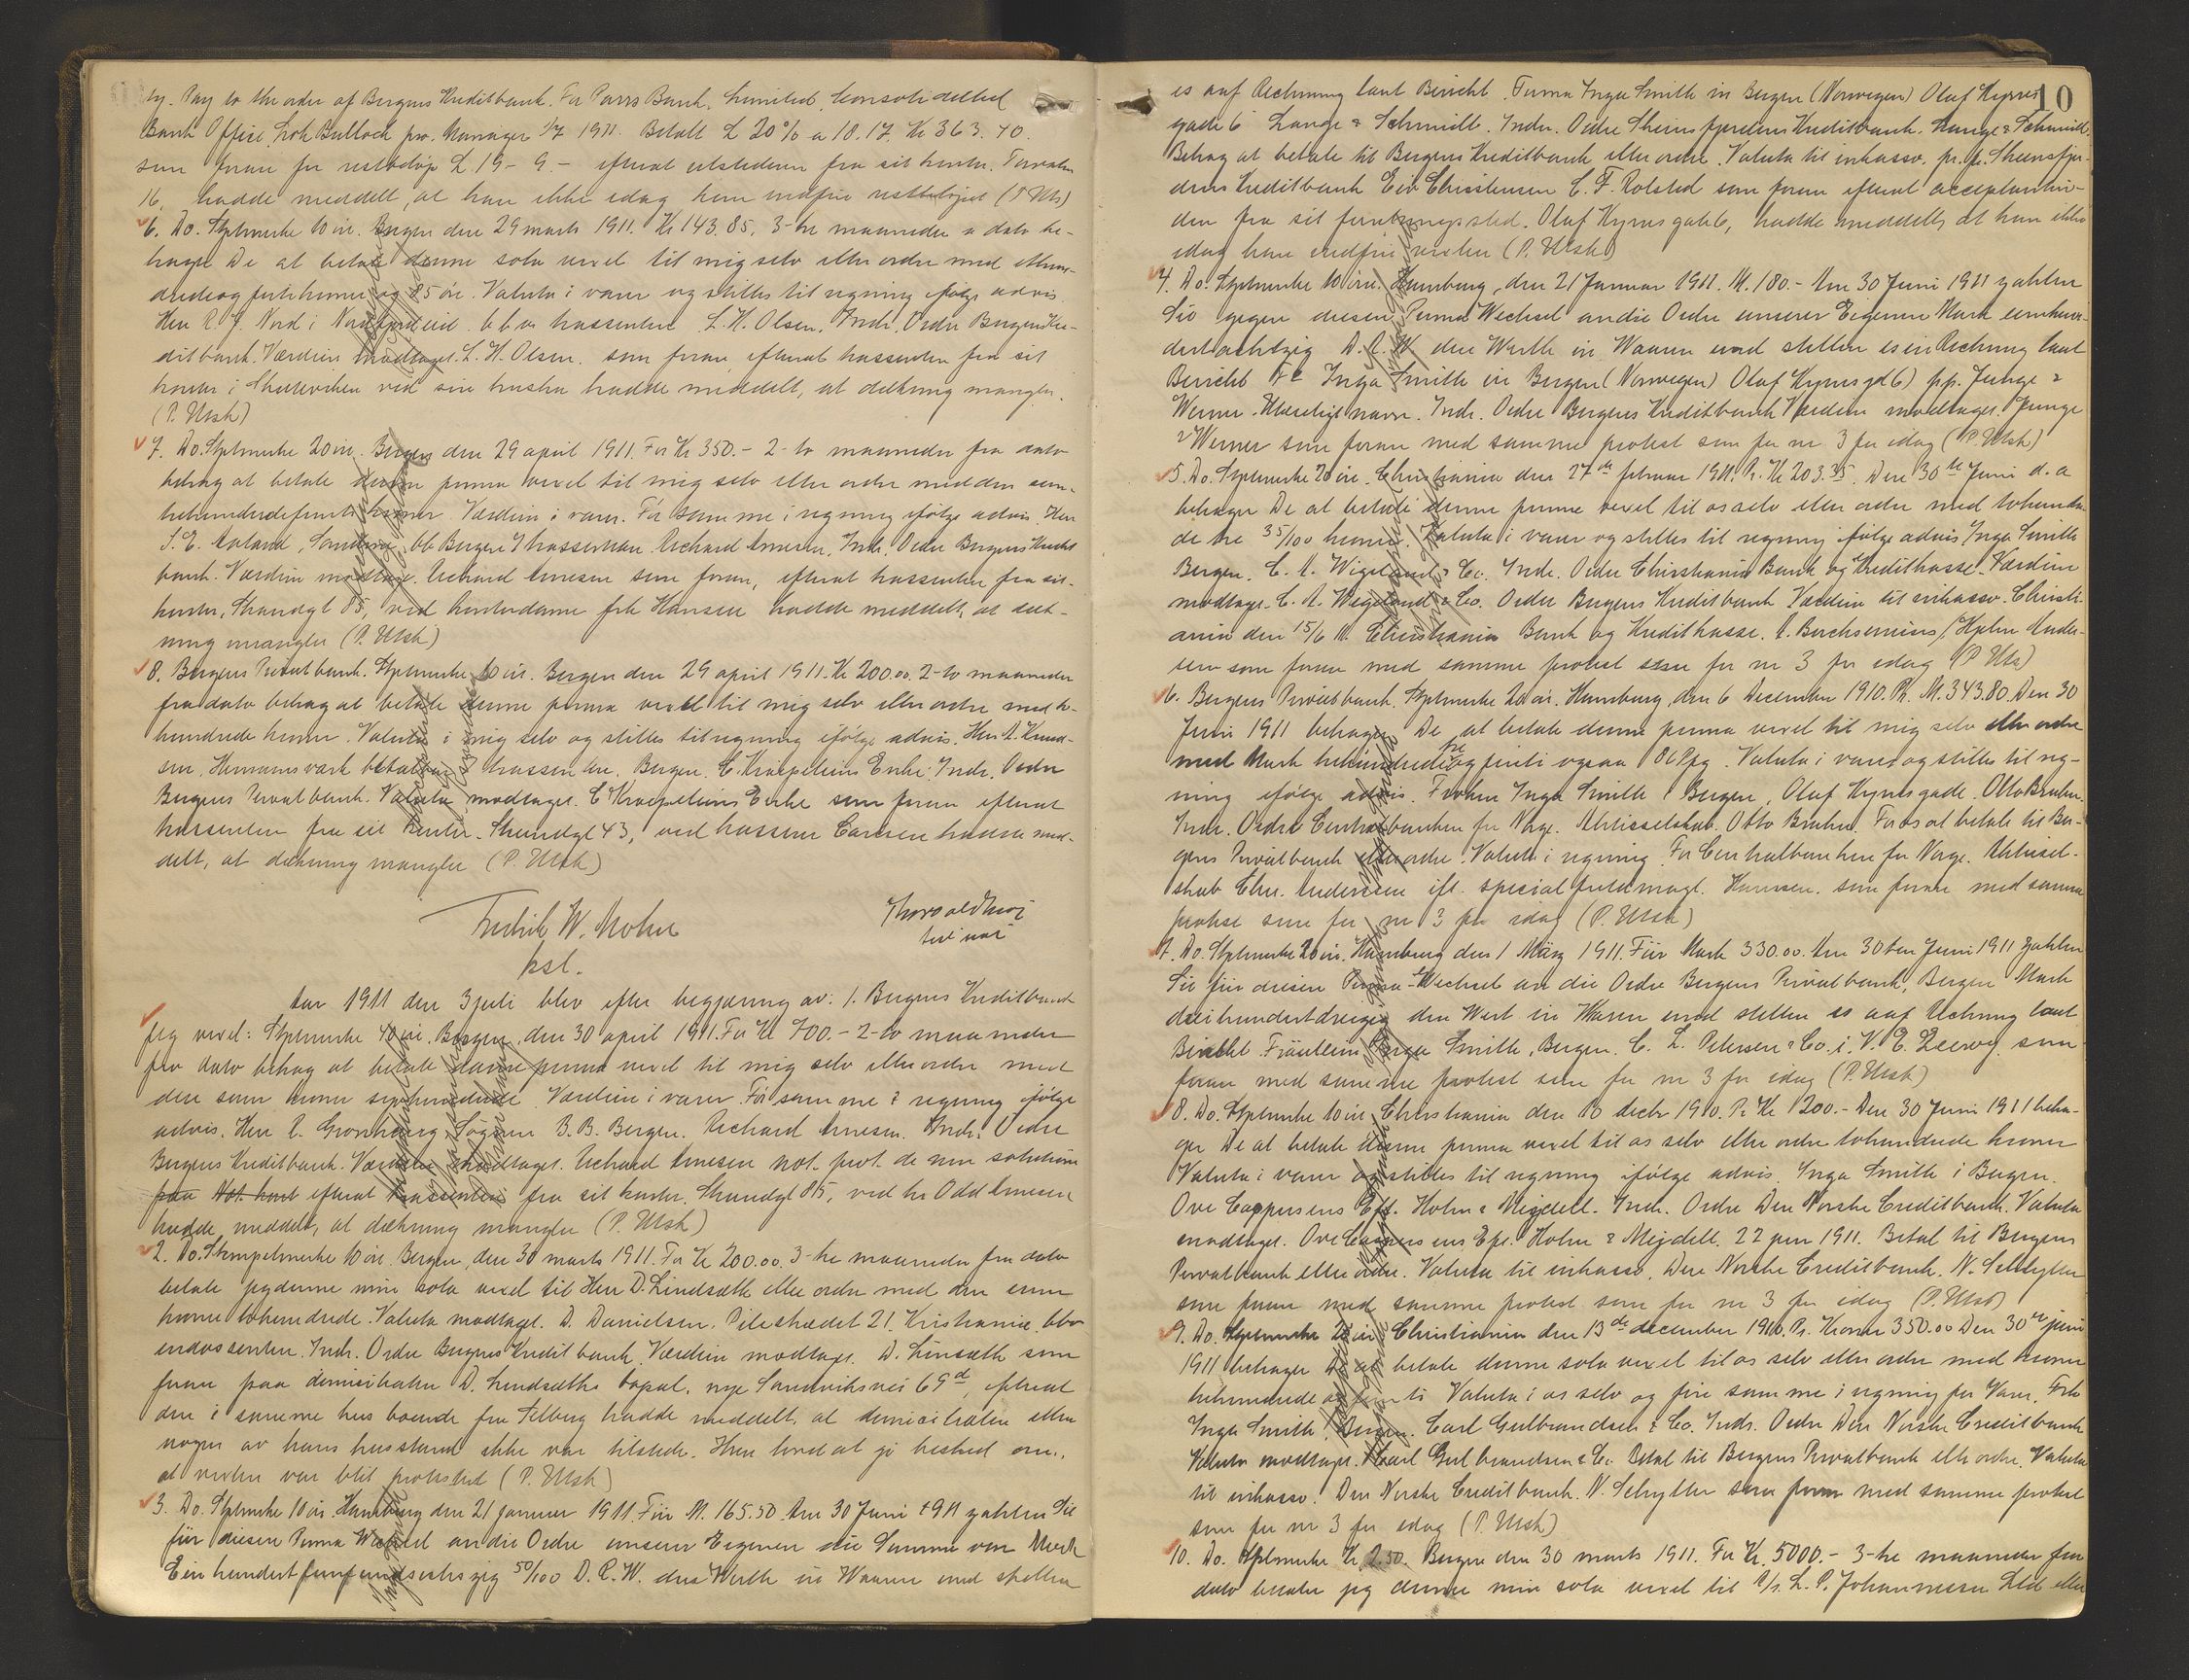 ty. Pay to the order of Bergens Kreditbank. For Parrs Bank, Limited, Consolidated
Bank Office Bullock pro. Manager 1/7 1911. Betalt £ 20% a 18.17. Kr 363.40.
som foran for restbeløp £ 19-9- efterat utstederen fra sit kontor. Torvalm.
16, hadde meddelt, at han ikke idag kan indfri restbeløpet (P. Utsk)
6. Do. Stplmerke 10 øre. Bergen den 29 marts 1911. Kr 143.85. 3-tre maaneder a dato be-
hager De at betale denne sola vexel til mig selv eller ordre med ethun-
dredeogførtitrekroner og 85 øre. Valuta i varer og stilles til regning ifølge advis
Herr R. J. Nord i Nordfjordeid. b b os trassenten L. H. Olsen. Indr. Ordre Bergens Kre-
ditbank. Værdien modtaget. L. H. Olsen. som foran, efterat trassenten fra sit
kontor i Skuteviken ved sin hustru hadde meddelt, at dækning mangler.
(P. Utsk)
7. Do. Stplmerke 20 øre. Bergen den 29 april 1911. For Kr 350.- 2-to maaneder fra dato
behag at betale denne prima vexel til mig selv eller ordre med den sum
trehundredefemti kroner. Værdien i varer. Før samme i regning ifølge advis. Herr
S. E. Aaland, Sandvig, bb Bergen Trassenten. Richard Arnesen. Indr. Ordre Bergens Kredit
bank. Værdien modtaget. Richard Arnesen som foran, efterat trassenten fra sit
kontor, Strandgt 85, ved kontordame frk Hansen hadde meddelt, at dæk-
ning mangler (P. Utsk)
8. Bergens Privatbank. Stplmerke 10 øre. Bergen den 29 april 1911. Kr 200.00. 2-to maaneder
fra dato behag at betale denne prima vexel til mig selv eller ordre med to-
hundrede kroner. Valuta i mig selv og stilles til regning ifølge advis. Herr A. Knud-
sen, Hermansverk betalbar trassenten. Bergen. C. Kræpeliens Enke. Indr. Ordre
Bergens Privatbank. Valuta modtaget. C Kræpeliens Enke som foran efterat
trassenten fra sit kontor. Strandgt 43, ved kasserer Carlsen hadde med-
delt, at dækning mangler (P. Utsk)
Fredrik W. Mohn
kst.
Aar 1911 den 3 juli blev efter begjæring av: 1. Bergens Kreditbank
flg vexel: Stplmerke 40 øre. Bergen den 30 april 1911. For Kr 700.- 2-to maaneder
fra dato behag at betale denne prima vexel til mig selv eller ordre med
den sum kroner syvhundrede. Værdien i varer. Før samme i regning ifølge
advis. Herr P. Grønhaug, Søgnen B. B. Bergen. Richard Arnesen. Indr. Ordre
Bergens Kreditbank. Værdien modtaget. Richard Arnesen not. prot. de non solutione
paa Not. kont efterat trassenten fra sit kontor, Strandgt 85, ved hr Odd Arnesen
hadde meddelt, at dækning mangler (P. Utsk)
2. Do. Stempelmerke 10 øre. Bergen, den 30 marts 1911. For Kr 200.00. 3-tre maaneder fra dato
betaler jeg denne min sola vexel til Herr D. Lindsæth eller ordre med den sum
kroner tohundrede. Valuta modtaget. D. Danielsen. Pilestrædet 21. Kristiania. bbo
endossenten. Indr. Ordre Bergens Kreditbank. Værdien modtaget. D. Linsæth som
foran paa domiciliaten D. Lindsæths bopæl, nye Sandviksvei 69d, efterat
den i samme hus boende fru Selberg hadde meddelt, at domiciliaten eller
nogen av hans husstand ikke var tilstede. Hun lovd at gi besked om,
at vexlen var blit protestert (P. Utsk)
3. Do. Stplmerke 10 øre. Hamburg den 21 januar 1911. Für M. 165.50. Am 30 Juni 1911 zahlen Sie
für diesen Prima Wechsel an die Ordre unserer Eigenen die Summe von Mark
Ein hundertfünfundsechszig 50/100 D. R. W. den Werth in Waaren und stellen
10
es auf Rechnung laut Bericht. Firma Inga Smith in Bergen (Norwegen) Olaf Kyrres
gade 6 Lange & Schmidt. Indr. Ordre Skiensfjordens Kreditbank. Lange & Schmidt.
Behag at betale til Bergens Kreditbank eller ordre. Valuta til inkasso. pr. pr. Skiensfjor-
dens Kreditbank Eiv. Christensen C. F. Rolsted som foran efterat acceptantin-
den fra sit forretningssted. Olaf Kyrres gate 6, hadde meddelt, at hun ikke
idag kan indfri vexlen (P. Utsk)
4. Do. Stplmerke 10 øre. Hamburg, den 21 Januar 1911. M. 180.- Am 30 Juni 1911 zahlen
Sie gegen diesen Prima Wechsel an die Ordre unserer Eigenen Mark einhun-
dertachtzig D. R. W. den Werth in Waaren und stellen es in Rechnung laut
Bericht Fr Inga Smith in Bergen (Norwegen) Olaf Kyrresgd 6) pp. Junge &
Werner. Ulæseligt navn. Indr. Ordre Bergens Kreditbank Værdien modtaget. Junge
& Werner som foran med samme protest som for nr 3 for idag (P. Utsk)
5. Do. Stplmerke 20 øre. Christiania den 27de februar 1911. Pr. Kr 203.35. Den 30te Juni d. a
behager De at betale denne prima vexel til os selv eller ordre med tohundre-
de tre 35/100 kroner. Valuta i varer og stilles til regning ifølge advis Inga Smith
Bergen. C. A. Wigeland & Co. Indr. Ordre Christiania Bank og Kreditkasse. Værdien
modtaget. C. A. Wigeland & Co. Ordre Bergens Kreditbank Værdien til inkasso. Christi-
ania den 15/6 11. Christiania Bank og Kreditkasse. A. Borchsenius/Hjalm Ander-
sen som foran med samme protest som for nr 3 for idag (P Utsk)
6. Bergens Privatbank. Stplmerke 20 øre. Hamburg, den 6 December 1910. Pr. M. 343.80. Den 30
Juni 1911 behager De at betale denne prima vexel til mig selv eller ordre
med Mark trehundrede og førti tre ogsaa 80 Pfg. Valuta i varer og stilles til reg-
ning ifølge advis. Frøken Inga Smith i Bergen, Olaf Kyrresgade. Otto Bruhn.
Indr. Ordre Centralbanken for Norge. Aktieselskab. Otto Bruhn. For os at betale til Ber-
gens Privatbank eller ordre. Valuta i regning. For Centralbanken for Norge. Aktiesel-
skab Chr. Anderssen ifl. special fuldmagt. Hansen. som foran med samme
protest som for nr 3 for idag (P. Utsk)
7. Do. Stplmerke 20 øre. Hamburg den 1 März 1911. Für Mark 330.00. Am 30ten Juni 1911 zahlen
Sie für diesen Prima-Wechsel an die Ordre Bergens Privatbank, Bergen Mark
dreihundertdreizig den Wert in Waren und stellen es auf Rechnung laut
Bericht Fräulein Inga Smith, Bergen. C. L. Petersen & Co. i. V. E. Zeeroog. som
foran med samme protest som for nr 3 for idag (P. Utsk)
8. Do. Stplmerke 10 øre. Christiania den 10 decbr 1910. Pr Kr 1200.- Den 30 Juni 1911 beha-
ger De at betale denne prima vexel til os selv eller ordre tohundrede kroner
Valuta i varer og stilles til regning ifølge advis. Inga Smith i Bergen.
Ove Coppersens Eft. Holm & Mejdell. Indr. Ordre Den Norske Creditbank. Valuta
modtaget. Ove Coppersens Eft. Holm & Mejdell. 22 jun 1911. Betal til Bergens
Privatbank eller ordre. Valuta til inkasso. Den Norske Creditbank. N. Schytter
som foran med samme protest som for nr 3 for idag (P. Utsk)
9. Do. Stplmerke 20 øre Christiania den 13de december 1910. Pr. Kroner 350.00 Den 30te juni
1911 behager De at betale denne sola vexel til os selv eller ordre med kroner
trehundrede og femti Valuta i os selv og føre samme i regning for Varer. Frk
Inga Smith. Bergen. Carl Gulbrandsen & Co. Indr. Ordre Den Norske Creditbank
Valuta modtaget. Carl Gulbrandsen & Co. Betal til Bergens Privatbank eller ordre. Valuta
til inkasso. Den Norske Creditbank. N. Schytter som foran med samme protest
som for nr 3 for idag (P. Utsk)
10. Do. Stplmerke Kr 2.50. Bergen den 30 marts 1911. For Kr. 5000.- 3-tre maaneder fra
dato betaler jeg denne min sola vexel til A/s. L. P. Johannesen Ltd eller